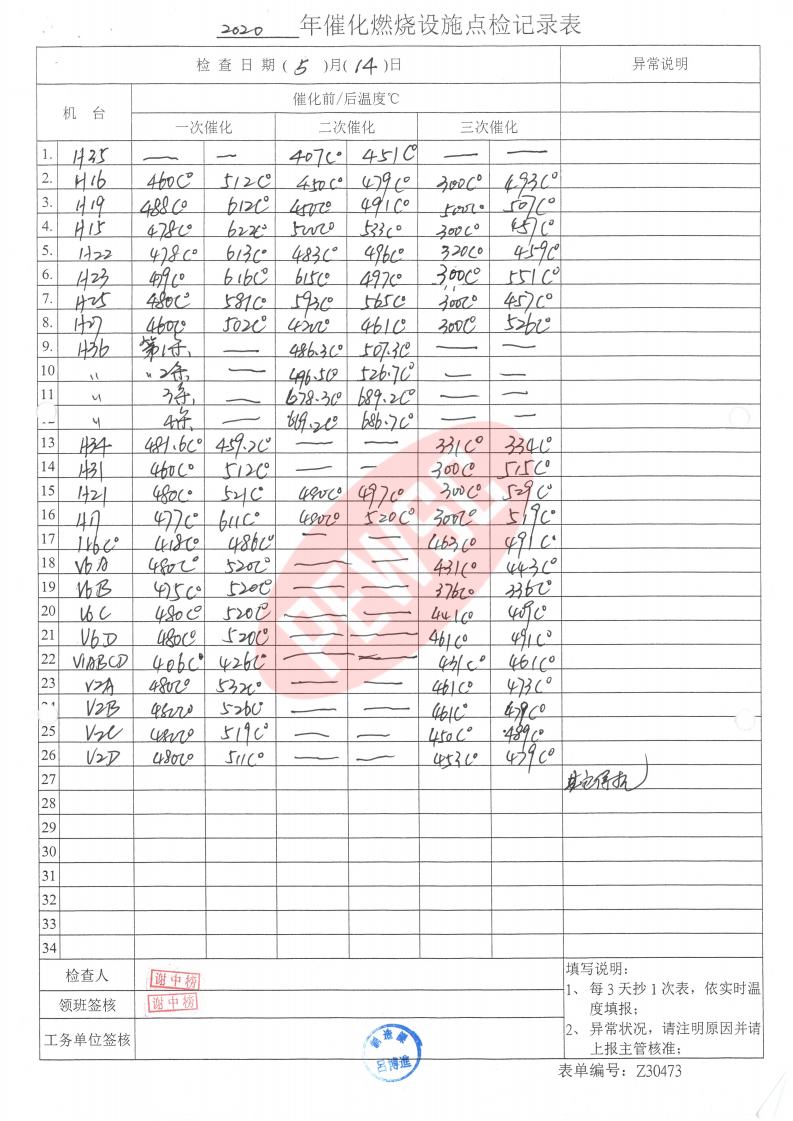 2020 年催化燃烧设施点检记录表
检 查 日 期 ( 5 )月( 14 )日 异常说明
机 台 催化前/后温度℃
一次催化 二次催化 三次催化
1. H35 — — 407C° 451C° — —
2. H16 460C° 512C° 450C° 479C° 300C° 493C°
3. H19 488C° 612C° 450C° 491C° 500C° 507C°
4. H15 478C° 622C° 500C° 533C° 300C° 457C°
5. H22 478C° 613C° 483C° 496C° 320C° 459C°
6. H23 479C° 616C° 615C° 497C° 300C° 551C°
7. H25 480C° 581C° 593C° 565C° 300C° 457C°
8. H27 460C° 502C° 420C° 461C° 300C° 526C°
9. H36 第1条, — 486.3C° 507.3C° — —
10 〃 〃2条, — 496.5C° 526.7C° — —
11 〃 3条, — 678.3C° 689.2C° — —
〃 4条, — 619.2C° 686.7C° — —
13 H34 481.6C° 459.2C° — — 331C° 334C°
14 H31 460C° 512C° — — 300C° 515C°
15 H21 480C° 521C° 490C° 497C° 300C° 529C°
16 H17 477C° 611C° 490C° 520C° 300C° 519C°
17 H6C° 418C° 486C° — — 463C° 491C°
18 V6A 480C° 520C° — — 431C° 443C°
19 V6B 475C° 520C° — — 376C° 336C°
20 V6C 480C° 520C° — — 441C° 409C°
21 V6D 480C° 520C° — — 461C° 491C°
22 V1ABCD 406C° 426C° — — 431C° 461C°
23 V2A 480C° 532C° — — 461C° 473C°
V2B 480C° 526C° — — 461C° 479C°
25 V2C 480C° 519C° — — 450C° 489C°
26 V2D 480C° 511C° — — 453C° 479C°
27
28
29
30
31
32
33
34
PEWSC
检查人 谢中榜
领班签核 谢中榜
工务单位签核 吕博進
填写说明：
1、 每 3 天抄 1 次表，依实时温
度填报；
2、 异常状况，请注明原因并请
上报主管核准；
表单编号：Z30473